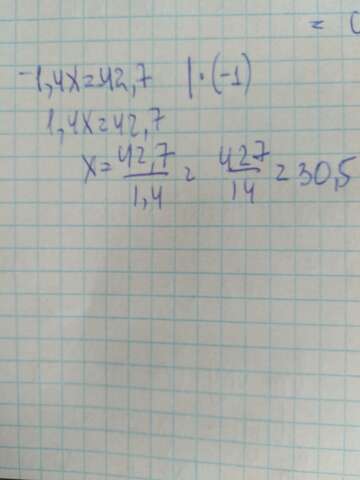 = 0
-1,4x=42,7 |·(-1)
1,4x=42,7
x= 42,7/1,4 = 427/14 = 30,5